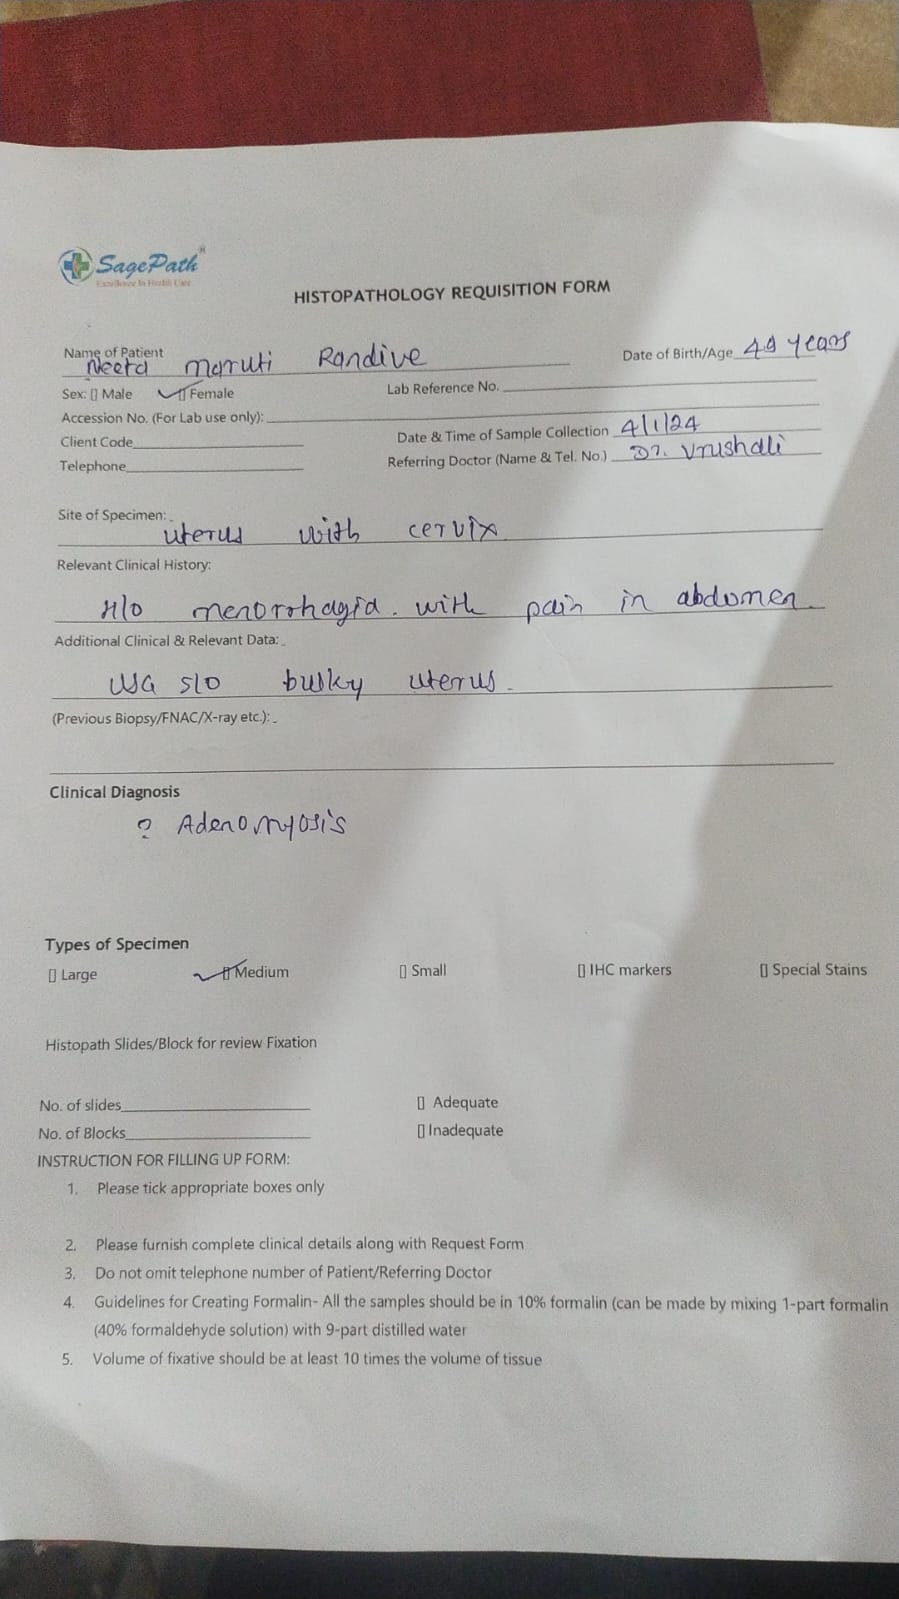 SagePath
Excellence In Health Care
HISTOPATHOLOGY REQUISITION FORM
Name of Patient Neeta Maruti Randive Date of Birth/Age 49 years
Sex: [] Male [] Female Lab Reference No.
Accession No. (For Lab use only):
Client Code Date & Time of Sample Collection 4/1/24
Telephone Referring Doctor (Name & Tel. No.) Dr. Vrushali
Site of Specimen:
uterus with cervix
Relevant Clinical History:
H/O menorrhagia. with pain in abdomen.
Additional Clinical & Relevant Data:
USG S/O bulky uterus.
(Previous Biopsy/FNAC/X-ray etc.):
Clinical Diagnosis
? Adenomyosis
Types of Specimen
[] Large [] Medium [] Small [] IHC markers [] Special Stains
Histopath Slides/Block for review Fixation
No. of slides [] Adequate
No. of Blocks [] Inadequate
INSTRUCTION FOR FILLING UP FORM:
1. Please tick appropriate boxes only
2. Please furnish complete clinical details along with Request Form
3. Do not omit telephone number of Patient/Referring Doctor
4. Guidelines for Creating Formalin- All the samples should be in 10% formalin (can be made by mixing 1-part formalin
(40% formaldehyde solution) with 9-part distilled water
5. Volume of fixative should be at least 10 times the volume of tissue